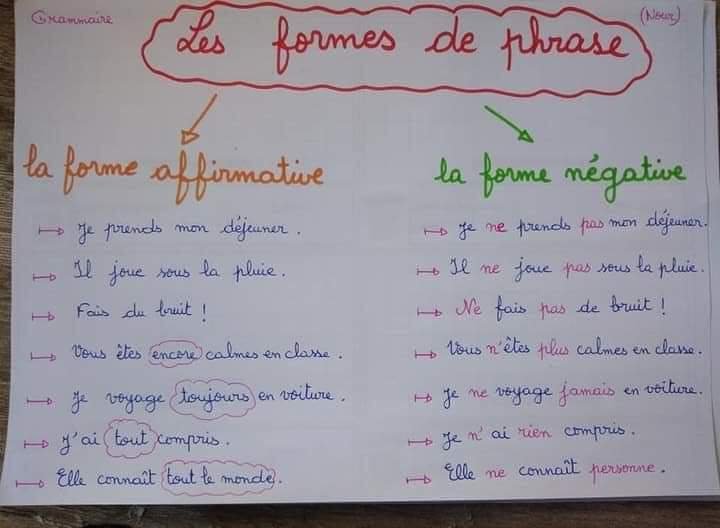 Grammaire
(Nour)
Les formes de phrase
la forme affirmative
Je prends mon déjeuner.
Il joue sous la pluie.
Fais du bruit !
Vous êtes encore calmes en classe.
Je voyage toujours en voiture.
J'ai tout compris.
Elle connaît tout le monde.
la forme négative
Je ne prends pas mon déjeuner.
Il ne joue pas sous la pluie.
Ne fais pas de bruit !
Vous n'êtes plus calmes en classe.
Je ne voyage jamais en voiture.
Je n'ai rien compris.
Elle ne connaît personne.